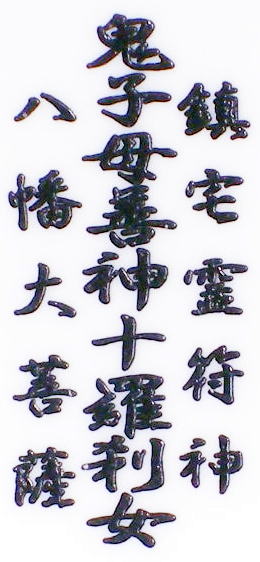 鎮宅靈符神
鬼子母善神十羅刹女
八幡大菩薩